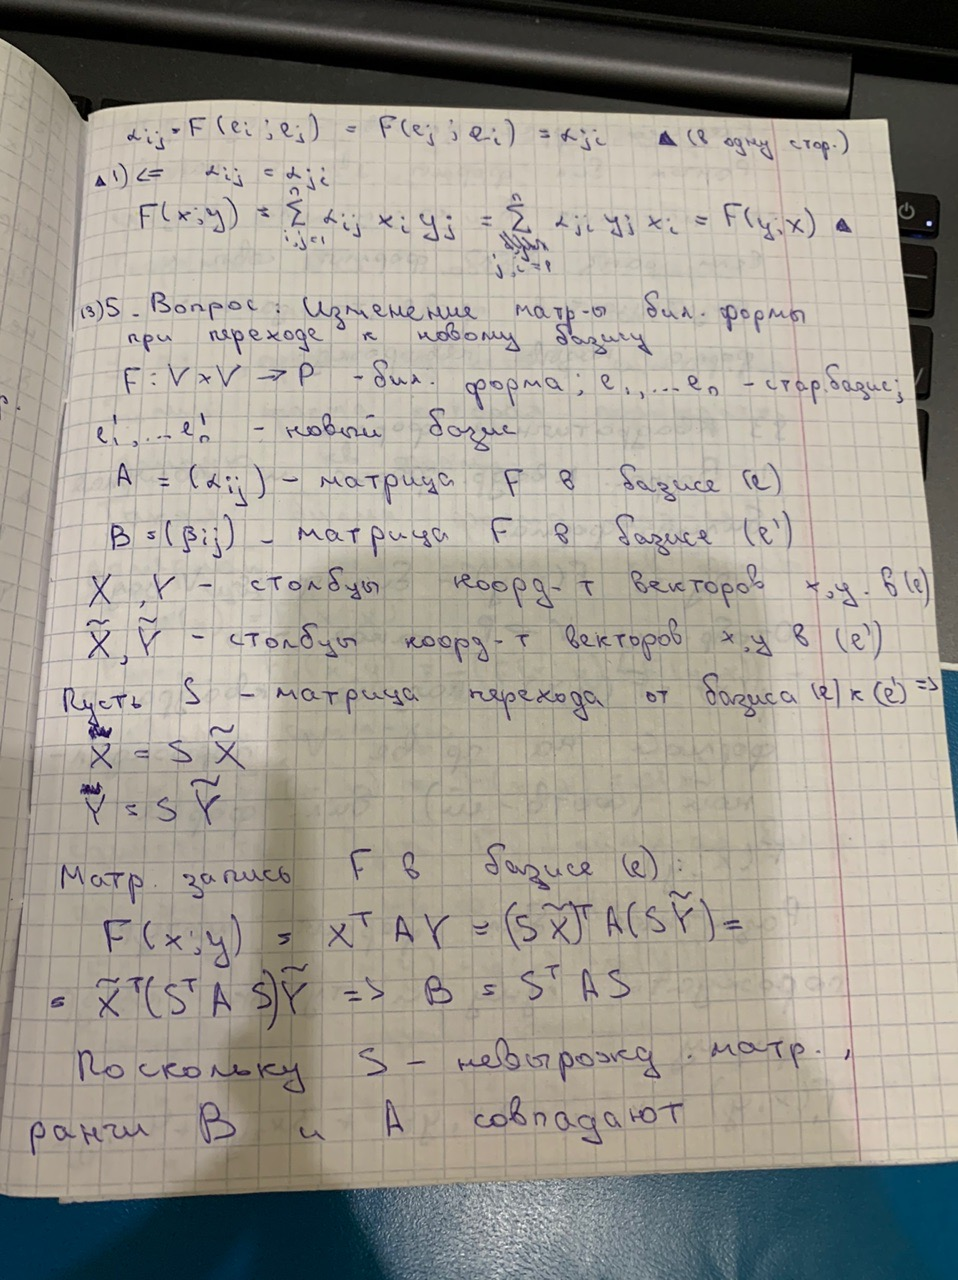 αij = F(ei; ej) = F(ej; ei) = αji ▲ (в одну стор.)
▲ 1) <= αij = αji
F(x;y) = Σ^n_{i,j=1} αij xi yj = Σ^n_{j,i=1} αji yj xi = F(y;x) ▲
(3)5. Вопрос: Изменение матр-ы бил. формы
при переходе к новому базису
F: V×V → P - бил. форма; e1,...en - стар.базис;
e1',...en' - новый базис
A = (αij) - матрица F в базисе (e)
B = (βij) - матрица F в базисе (e')
X, Y - столбцы коорд-т векторов x,y в (e)
X̃, Ỹ - столбцы коорд-т векторов x,y в (e')
Пусть S - матрица перехода от базиса (e) к (e') =>
X = S X̃
Y = S Ỹ
Матр. запись F в базисе (e):
F(x;y) = X^T A Y = (S X̃)^T A(S Ỹ) =
= X̃^T (S^T A S) Ỹ => B = S^T A S
Поскольку S - невырожд. матр.,
ранги B и A совпадают